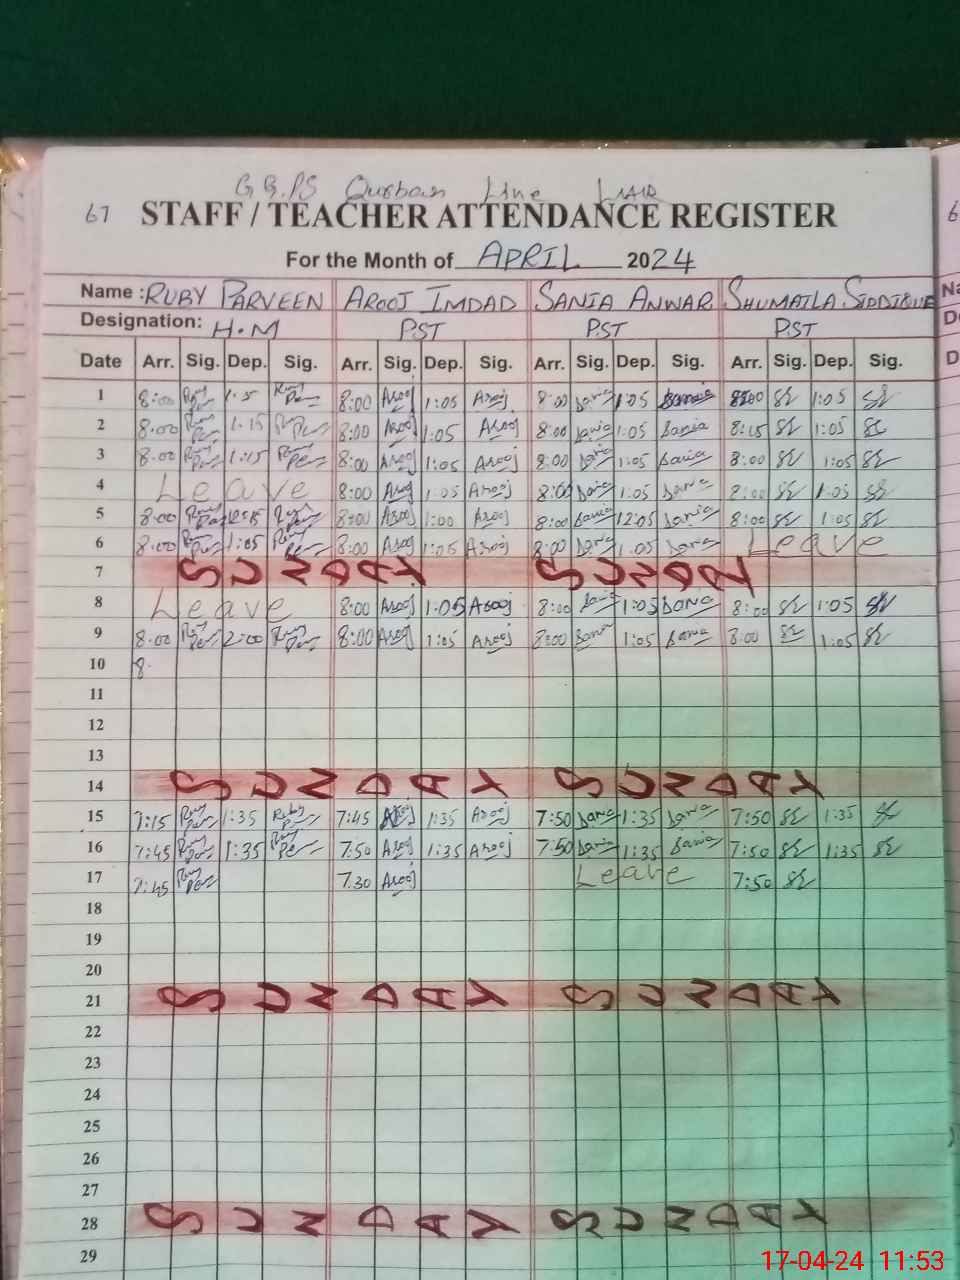 G.G.PS Qurban Line
67 STAFF / TEACHER ATTENDANCE REGISTER
For the Month of APRIL 2024
Name : RUBY PARVEEN AROOJ IMDAD SANIA ANWAR SHUMAILA SIDDIQUE
Designation: H.M PST PST PST
Date Arr. Sig. Dep. Sig. Arr. Sig. Dep. Sig. Arr. Sig. Dep. Sig. Arr. Sig. Dep. Sig.
1 8:00 8:00 Arooj 1:05 Arooj 8:00 Sania 1:05 Sania 8:00 1:05
2 8:00 1:15 8:00 Arooj 1:05 Arooj 8:00 Sania 1:05 Sania 8:15 1:05
3 8:00 1:15 8:00 Arooj 1:05 Arooj 8:00 Sania 1:05 Sania 8:00 1:05
4 Leave 8:00 Arooj 1:05 Arooj 8:00 Sania 1:05 Sania 8:00 1:05
5 8:00 8:00 Arooj 1:00 Arooj 8:00 Sania 12:05 Sania 8:00 1:05
6 8:00 1:05 8:00 Arooj 1:05 Arooj 8:00 Sania 1:05 Sania Leave
7 SUNDAY SUNDAY
8 Leave 8:00 Arooj 1:05 Arooj 8:00 Sania 1:05 SANA 8:00 1:05
9 8:00 2:00 8:00 Arooj 1:05 Arooj 8:00 Sania 1:05 Sania 8:00 1:05
10 8
11
12
13
14 SUNDAY SUNDAY
15 7:15 1:35 Ruby 7:45 Arooj 1:35 Arooj 7:50 Sania 1:35 Sania 7:50 1:35
16 7:45 1:35 7:50 Arooj 1:35 Arooj 7:50 Sania 1:35 Sania 7:50 1:35
17 7:45 7:30 Arooj Leave 7:50
18
19
20
21 SUNDAY SUNDAY
22
23
24
25
26
27
28 SUNDAY SUNDAY
29
17-04-24 11:53